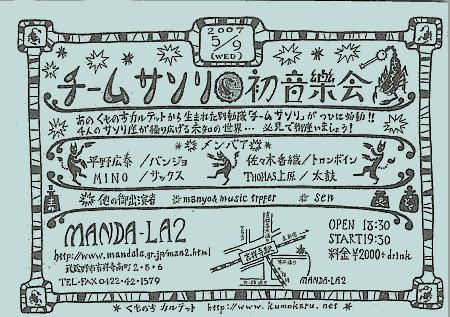 2007
5/9
(WED)
チームサソリ初音樂会
あのくものすカルテットから生まれた別動隊「チームサソリ」がつひに始動!!
4人のサソリ座が繰り広げる未知の世界… 必見で御座いましょう!
メンバア
平野広泰/バンジョ 佐々木香織/トロンボイン
MINO/サックス THOMAS上原/太鼓
他の御出演者 manyo&music tripper sen
MANDA-LA2
http://www.mandala.gr.jp/man2.html
武蔵野市吉祥寺南町2-8-6
TEL・FAX 0422-42-1579
吉祥寺駅
井ノ頭通り
MANDA-LA2
OPEN 18:30
START 19:30
料金 ¥2000+drink
くものすカルテット http://www.kumokaru.net